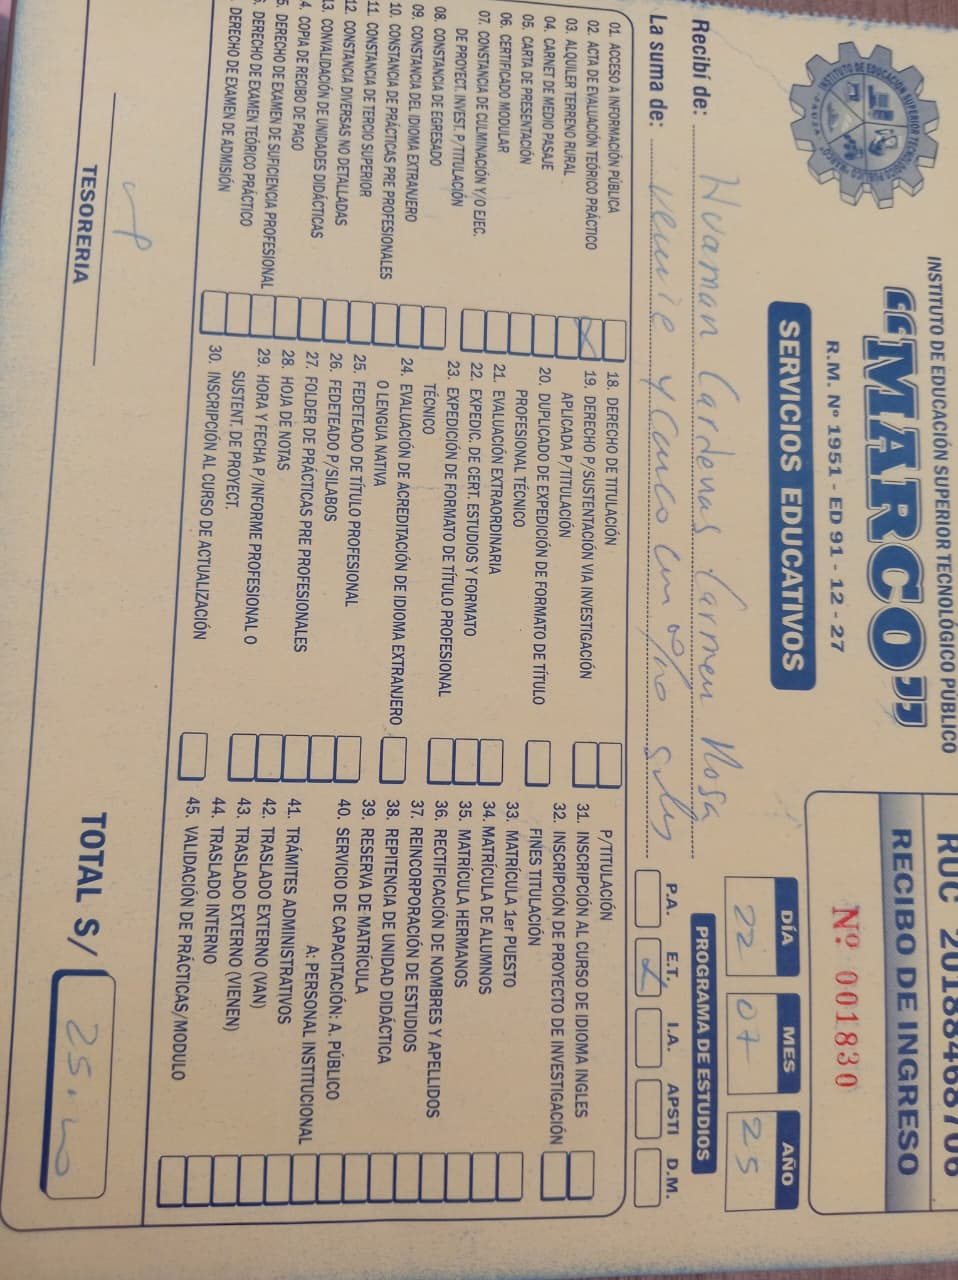 INSTITUTO DE EDUCACIÓN SUPERIOR TECNOLÓGICO PÚBLICO
“MARCO”
R.M. Nº 1951 - ED 91 - 12 - 27
SERVICIOS EDUCATIVOS
RUC 20188468706
RECIBO DE INGRESO
Nº 001830
DÍA MES AÑO
22 07 25
Recibí de: Huaman Cardenas Carmen Rosa
La suma de: veinte y cinco con 00/100 soles
PROGRAMA DE ESTUDIOS
P.A. E.T. I.A. APSTI D.M.
X
01. ACCESO A INFORMACIÓN PÚBLICA
02. ACTA DE EVALUACIÓN TEÓRICO PRÁCTICO
X
03. ALQUILER TERRENO RURAL
04. CARNET DE MEDIO PASAJE
05. CARTA DE PRESENTACIÓN
06. CERTIFICADO MODULAR
07. CONSTANCIA DE CULMINACIÓN Y/O EJEC.
DE PROYECT. INVEST. P/TITULACIÓN
08. CONSTANCIA DE EGRESADO
09. CONSTANCIA DEL IDIOMA EXTRANJERO
10. CONSTANCIA DE PRÁCTICAS PRE PROFESIONALES
11. CONSTANCIA DE TERCIO SUPERIOR
12. CONSTANCIA DIVERSAS NO DETALLADAS
13. CONVALIDACIÓN DE UNIDADES DIDÁCTICAS
4. COPIA DE RECIBO DE PAGO
5. DERECHO DE EXAMEN DE SUFICIENCIA PROFESIONAL
DERECHO DE EXAMEN TEÓRICO PRÁCTICO
DERECHO DE EXAMEN DE ADMISIÓN
18. DERECHO DE TITULACIÓN
19. DERECHO P/SUSTENTACIÓN VIA INVESTIGACIÓN
APLICADA P/TITULACIÓN
20. DUPLICADO DE EXPEDICIÓN DE FORMATO DE TÍTULO
PROFESIONAL TÉCNICO
21. EVALUACIÓN EXTRAORDINARIA
22. EXPEDIC. DE CERT. ESTUDIOS Y FORMATO
23. EXPEDICIÓN DE FORMATO DE TÍTULO PROFESIONAL
TÉCNICO
24. EVALUACIÓN DE ACREDITACIÓN DE IDIOMA EXTRANJERO
O LENGUA NATIVA
25. FEDETEADO DE TÍTULO PROFESIONAL
26. FEDETEADO P/SILABOS
27. FOLDER DE PRÁCTICAS PRE PROFESIONALES
28. HOJA DE NOTAS
29. HORA Y FECHA P/INFORME PROFESIONAL O
SUSTENT. DE PROYECT.
30. INSCRIPCIÓN AL CURSO DE ACTUALIZACIÓN
P/TITULACIÓN
31. INSCRIPCIÓN AL CURSO DE IDIOMA INGLES
32. INSCRIPCIÓN DE PROYECTO DE INVESTIGACIÓN
FINES TITULACIÓN
33. MATRÍCULA 1er PUESTO
34. MATRÍCULA DE ALUMNOS
35. MATRÍCULA HERMANOS
36. RECTIFICACIÓN DE NOMBRES Y APELLIDOS
37. REINCORPORACIÓN DE ESTUDIOS
38. REPITENCIA DE UNIDAD DIDÁCTICA
39. RESERVA DE MATRÍCULA
40. SERVICIO DE CAPACITACIÓN: A. PÚBLICO
A: PERSONAL INSTITUCIONAL
41. TRÁMITES ADMINISTRATIVOS
42. TRASLADO EXTERNO (VAN)
43. TRASLADO EXTERNO (VIENEN)
44. TRASLADO INTERNO
45. VALIDACIÓN DE PRÁCTICAS/MODULO
TESORERIA
TOTAL S/ 25.00